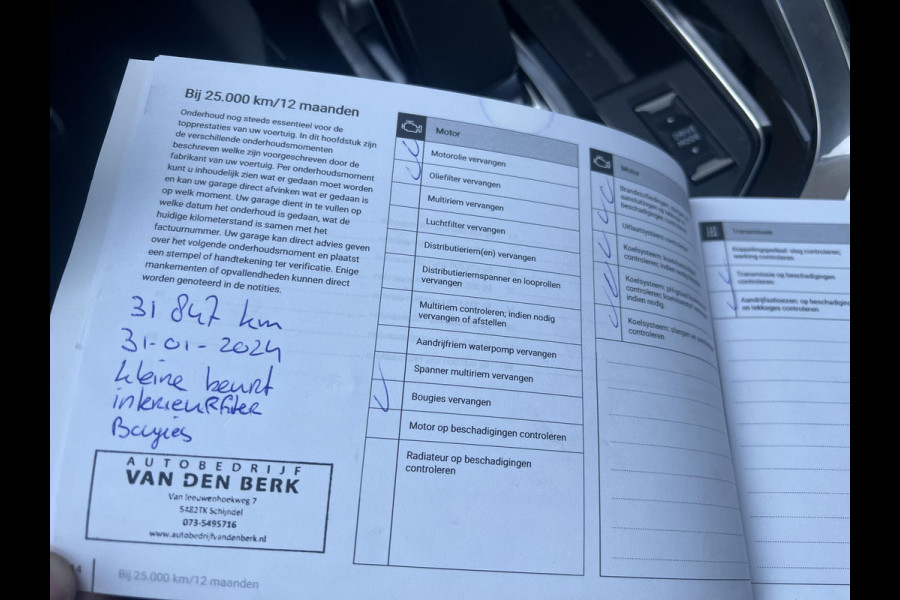 Bij 25.000 km/12 maanden
Onderhoud nog steeds essentieel voor de
topprestaties van uw voertuig. In dit hoofdstuk zijn
de verschillende onderhoudsmomenten
beschreven welke zijn voorgeschreven door de
fabrikant van uw voertuig. Per onderhoudsmoment
kunt u inhoudelijk zien wat er gedaan moet worden
en kan uw garage direct afvinken wat er gedaan is
op welk moment. Uw garage dient in te vullen op
welke datum het onderhoud is gedaan, wat de
huidige kilometerstand is samen met het
factuurnummer. Uw garage kan direct advies geven
over het volgende onderhoudsmoment en plaatst
een stempel of handtekening ter verificatie. Enige
mankementen of opvallendheden kunnen direct
worden genoteerd in de notities.
31 847 km
31-01-2024
kleine beurt
interieurfilter
Bougies
AUTOBEDRIJF
VAN DEN BERK
Van leeuwenhoekweg 7
5482TK Schijndel
073-5495716
www.autobedrijfvandenberk.nl
14
Bij 25.000 km/12 maanden
Motor
Motorolie vervangen
Oliefilter vervangen
Multiriem vervangen
Luchtfilter vervangen
Distributieriem(en) vervangen
Distributieriemspanner en looprollen
vervangen
Multiriem controleren; indien nodig
vervangen of afstellen
Aandrijfriem waterpomp vervangen
Spanner multiriem vervangen
Bougies vervangen
Motor op beschadigingen controleren
Radiateur op beschadigingen
controleren
Motor
Brandstofleidingen
aansluitingen op
beschadigingen
Uitlaatsysteem
Koelsysteem:
controleren; indien
Koelsysteem:
controleren;
indien nodig
Koelsysteem: slangen
controleren
Transmissie
Koppelingspedaal: slag controleren;
werking controleren
Transmissie op beschadigingen
controleren
Aandrijfashoezen: op beschadiging
en lekkages controleren
DRIVE
MODE